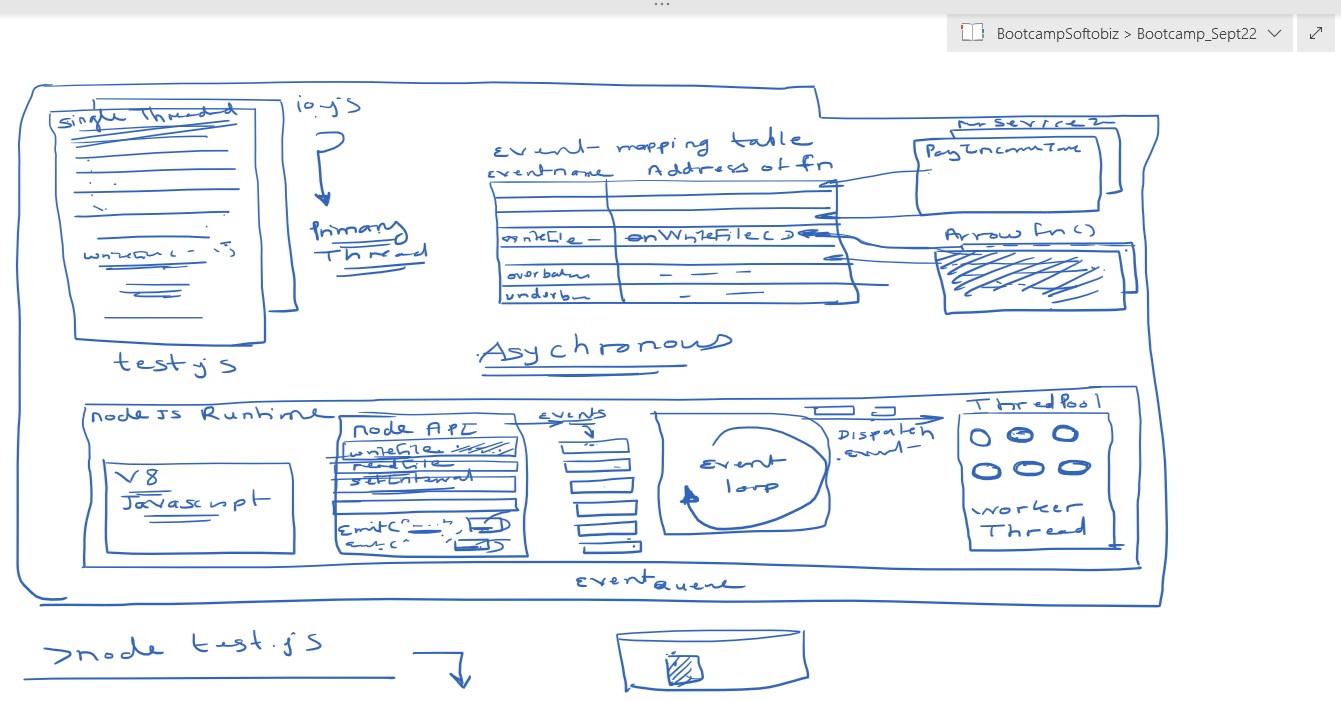 BootcampSoftobiz > Bootcamp_Sept22
Single Threaded
io.js
Primary
Thread
writeFile( - );
test.js
Event- mapping table
Eventname Address of fn
writeFile - onWriteFile()
overbal
underb
Service2
PayIncomeTax
Arrow fn()
Asychronous
node JS Runtime
V8
Javascript
node API
writeFile
readFile
setInterval
Emit("---",
Emit("
EVENTS
Event
loop
Dispatch
event
ThredPool
worker
Thread
Eventqueue
>node test.js